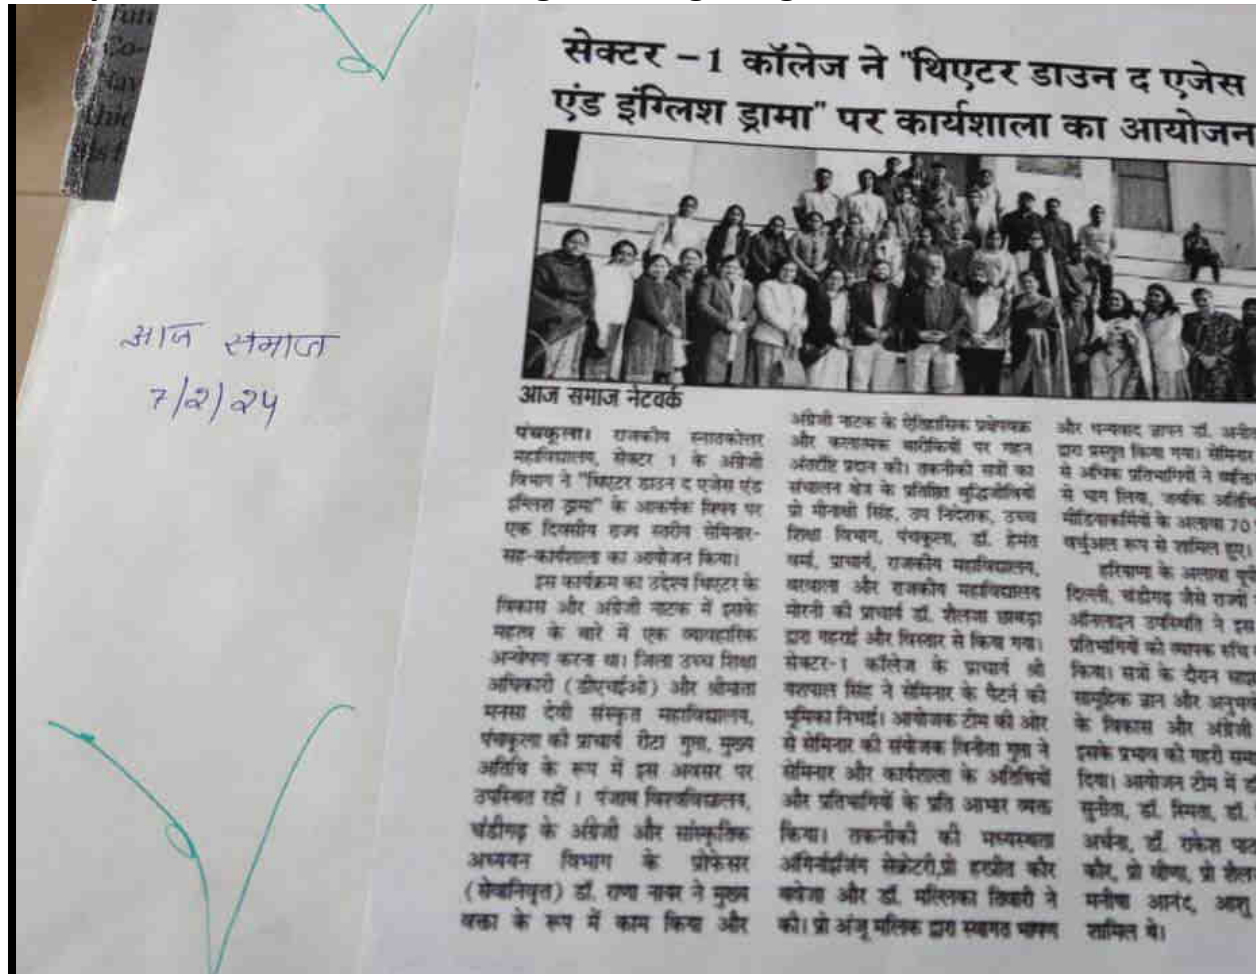 सेक्टर -1 कॉलेज ने "थिएटर डाउन द एजेस
एंड इंग्लिश ड्रामा" पर कार्यशाला का आयोजन
आज समाज
7/2/24
आज समाज नेटवर्क
पंचकूला। राजकीय स्नातकोत्तर
महाविद्यालय, सेक्टर 1 के अंग्रेजी
विभाग ने "थिएटर डाउन द एजेस एंड
इंग्लिश ड्रामा" के आकर्षक विषय पर
एक दिवसीय राज्य स्तरीय सेमिनार-
सह-कार्यशाला का आयोजन किया।
इस कार्यक्रम का उद्देश्य थिएटर के
विकास और अंग्रेजी नाटक में इसके
महत्व के बारे में एक व्यावहारिक
अन्वेषण करना था। जिला उच्च शिक्षा
अधिकारी (डीएचईओ) और श्रीमाता
मनसा देवी संस्कृत महाविद्यालय,
पंचकूला की प्राचार्य रीटा गुप्ता, मुख्य
अतिथि के रूप में इस अवसर पर
उपस्थित रहीं। पंजाब विश्वविद्यालय,
चंडीगढ़ के अंग्रेजी और सांस्कृतिक
अध्ययन विभाग के प्रोफेसर
(सेवानिवृत्त) डॉ. राणा नायर ने मुख्य
वक्ता के रूप में काम किया और
अंग्रेजी नाटक के ऐतिहासिक प्रक्षेपवक्र
और कलात्मक बारीकियों पर गहन
अंतर्दृष्टि प्रदान की। तकनीकी सत्रों का
संचालन क्षेत्र के प्रतिष्ठित बुद्धिजीवियों
प्रो मीनाक्षी सिंह, उप निदेशक, उच्च
शिक्षा विभाग, पंचकूला, डॉ. हेमंत
वर्मा, प्राचार्य, राजकीय महाविद्यालय,
बरवाला और राजकीय महाविद्यालय
मोरनी की प्राचार्य डॉ. शैलजा छाबड़ा
द्वारा गहराई और विस्तार से किया गया।
सेक्टर-1 कॉलेज के प्राचार्य श्री
यशपाल सिंह ने सेमिनार के पैटर्न की
भूमिका निभाई। आयोजक टीम की ओर
से सेमिनार की संयोजक विनीता गुप्ता ने
सेमिनार और कार्यशाला के अतिथियों
और प्रतिभागियों के प्रति आभार व्यक्त
किया। तकनीकी की मध्यस्थता
ऑर्गनाईजिंग सेक्रेटरी,प्रो हरप्रीत कौर
बावेजा और डॉ. मल्लिका तिवारी ने
की। प्रो अंजू मलिक द्वारा स्वागत भाषण
और धन्यवाद ज्ञापन डॉ.
द्वारा प्रस्तुत किया गया। सेमिनार
से अधिक प्रतिभागियों ने
से भाग लिया, जबकि
मीडियाकर्मियों के अलावा 70
वर्चुअल रूप से शामिल हुए।
हरियाणा के अलावा
दिल्ली, चंडीगढ़ जैसे राज्यों
ऑनलाइन उपस्थिति ने इस
प्रतिभागियों की व्यापक रुचि
किया। सत्रों के दौरान
सामूहिक ज्ञान और
के विकास और अंग्रेजी
इसके प्रभाव की गहरी
दिया। आयोजन टीम में
सुनीता, डॉ. स्मिता, डॉ.
अर्चना, डॉ. राकेश
कौर, प्रो वीणा, प्रो
मनीषा आनंद, आशु
शामिल थे।